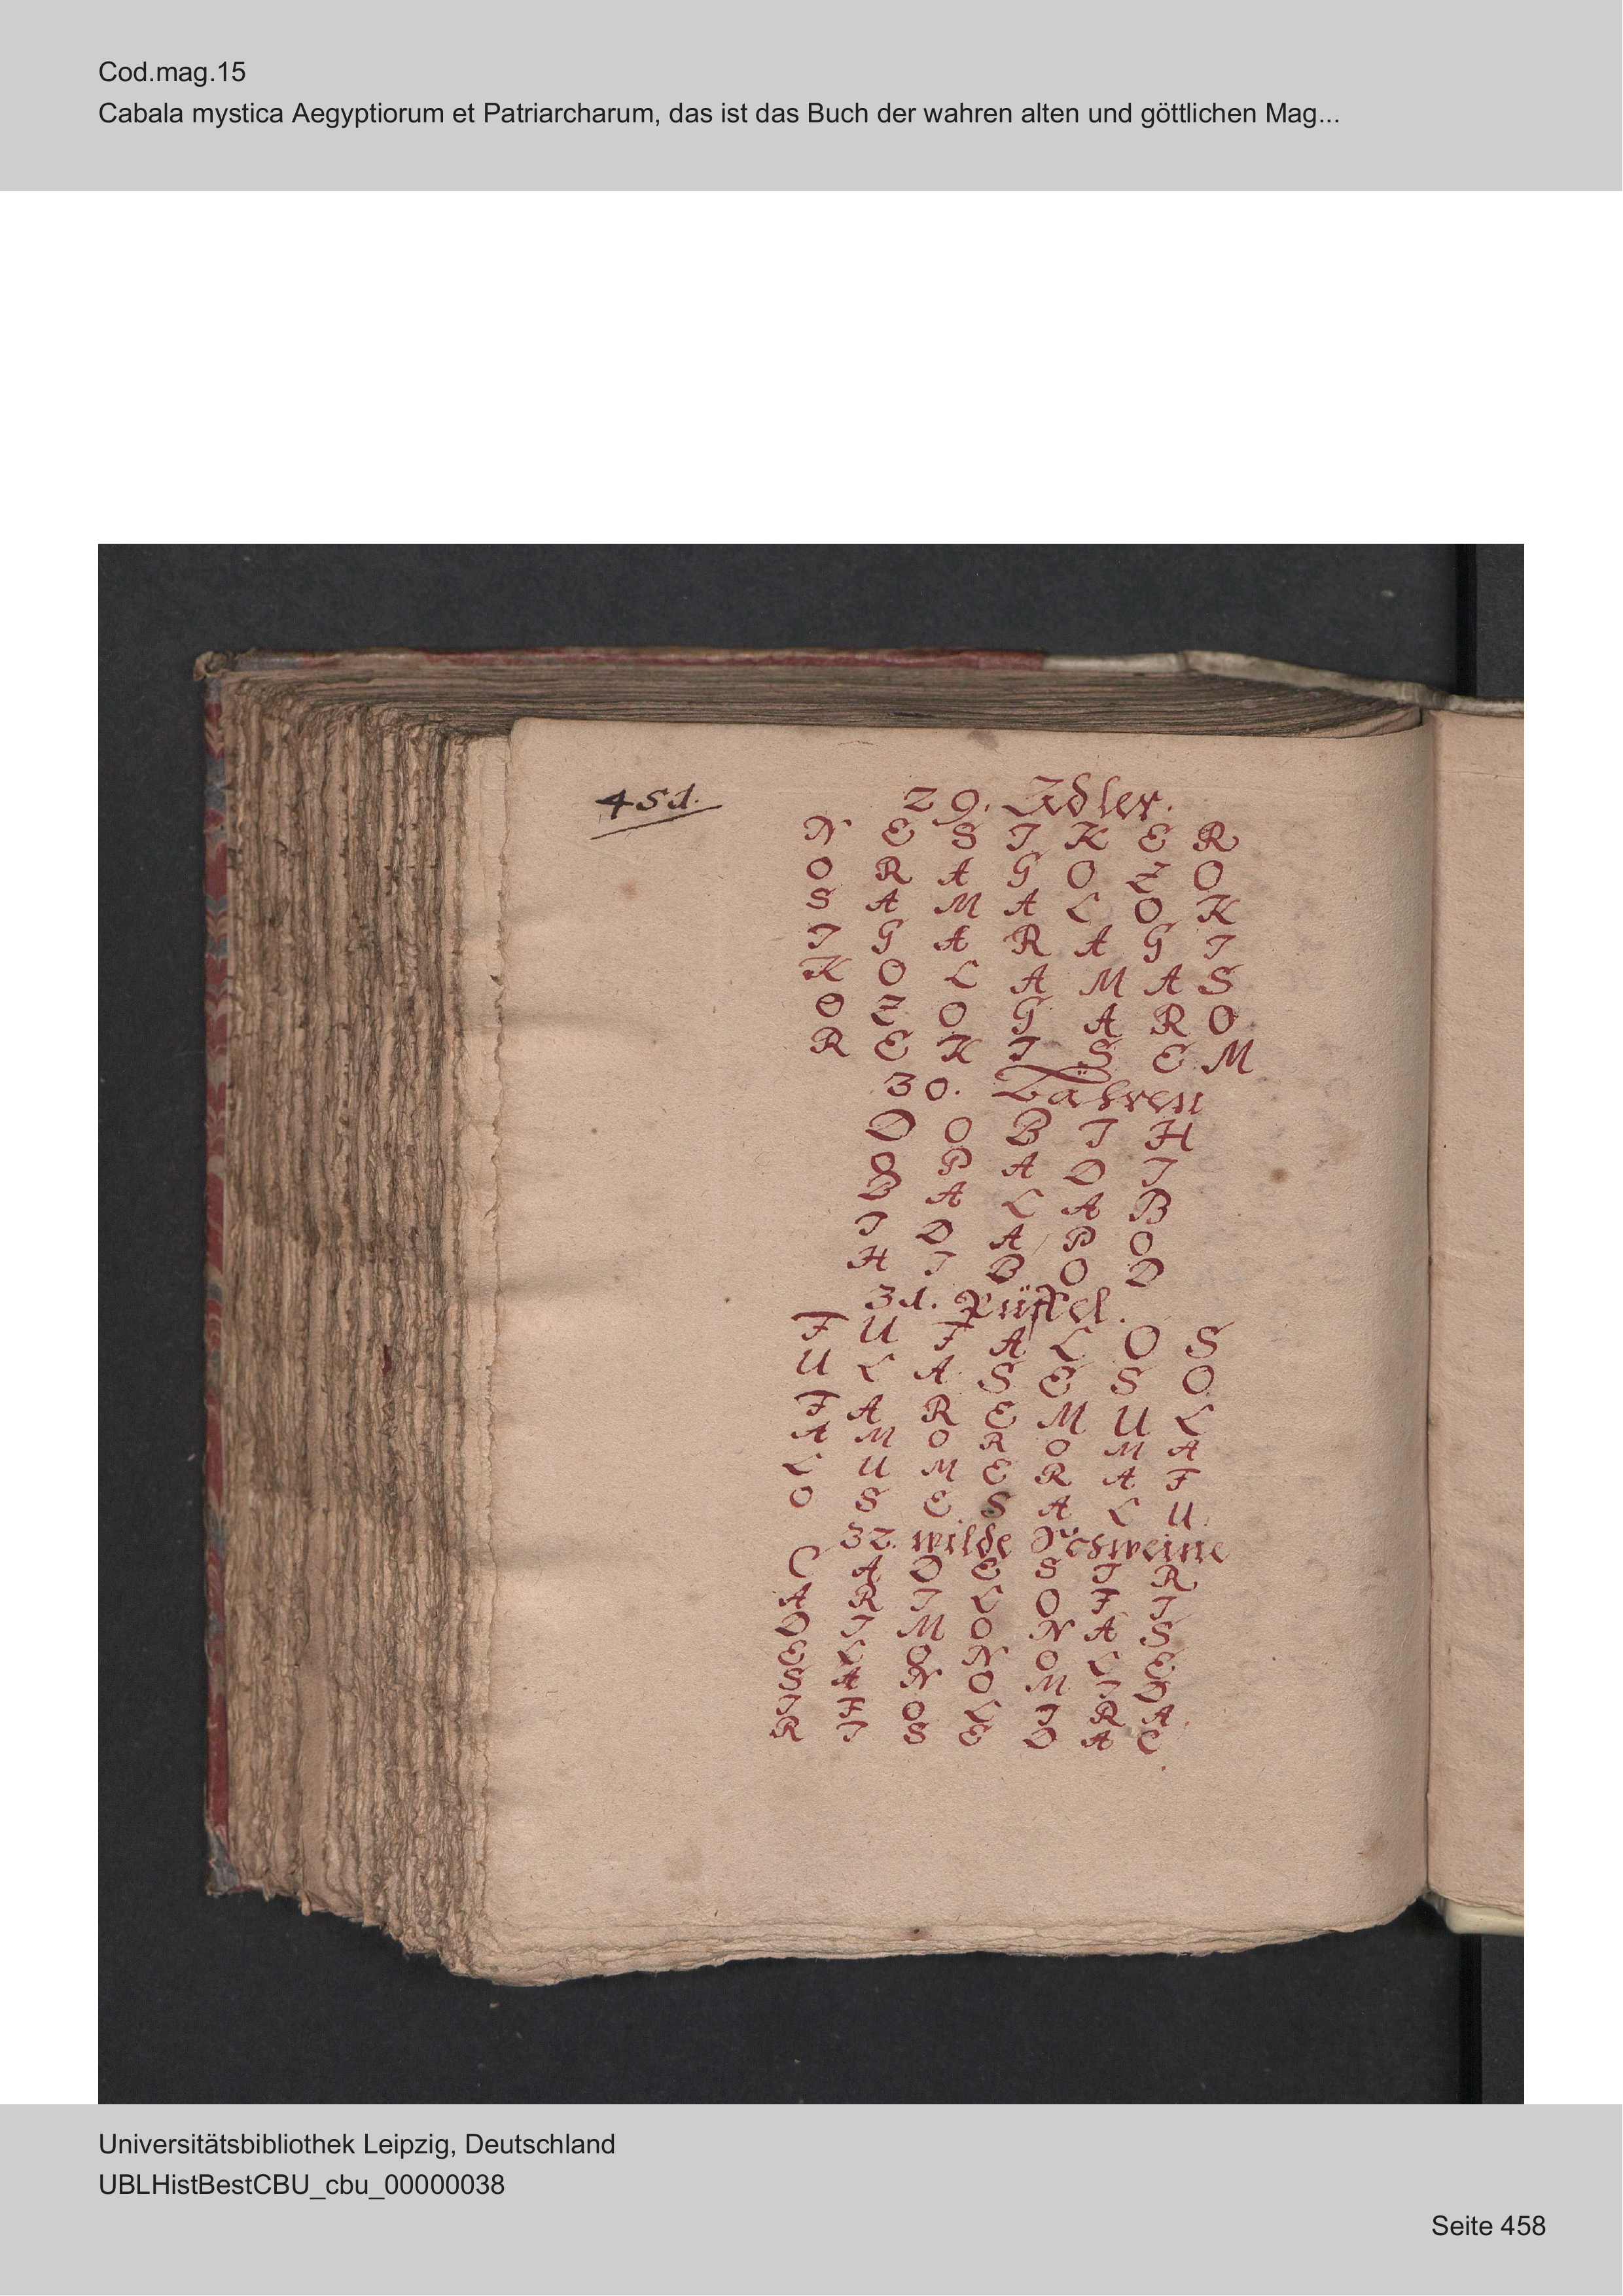 Cod.mag.15
Cabala mystica Aegyptiorum et Patriarcharum, das ist das Buch der wahren alten und göttlichen Mag...
451.
29. Adler.
N E S I K E R
O R A G O Z O
S A M A L O K
I G A R A G I
K O L A M A S
O Z O G A R O
R E K I S E M
30. Bähren
D O B I H
O P A D I
B A L A B
I D A P O
H I B O D
31. Püffel.
F U F A L O S
U L A S E S O
F A R E M U L
A M O R O M A
L U M E R A F
O S E S A L U
32. wilde
C A D E S I R
A R I L O F I
D I M O N A S
E L O N O L E
S A N O M I D
I F O L I R A
R I S E D A C
Universitätsbibliothek Leipzig, Deutschland
UBLHistBestCBU_cbu_00000038
Seite 458